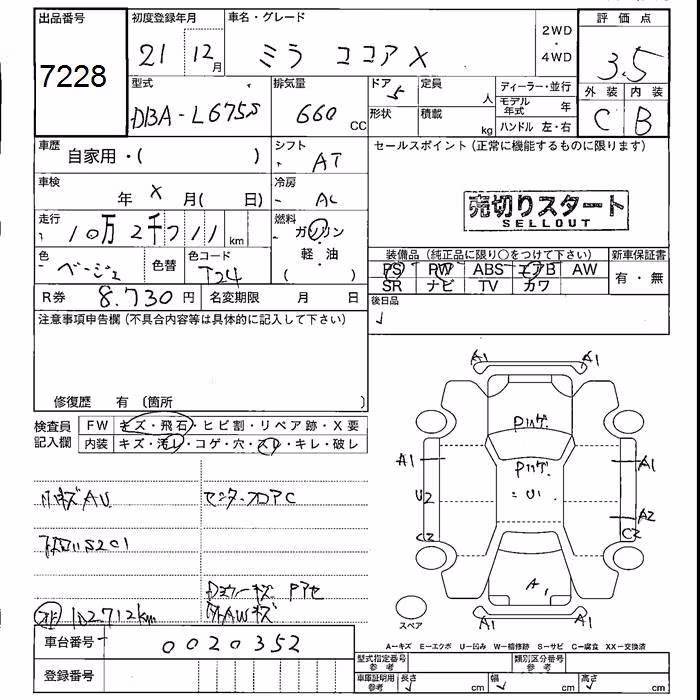 出品番号
7228
初度登録年月
21 12月
車名・グレード
ミラ ココア X
2WD
・
4WD
評価点
3.5
型式
DBA-L675S
排気量
660 CC
ドア 5
定員 人
ディーラー・並行
モデル年式 年
ハンドル 左・右
形状
積載 kg
外装 内装
C B
車歴
自家用・( )
シフト
AT
セールスポイント (正常に機能するものに限ります)
車検
年 X 月( 日)
冷房
AC
売切りスタート
SELLOUT
走行
10万 2千711 km
燃料
ガソリン
・
軽・油
( )
色
ベージュ
色替
色コード
T24
装備品 (純正品に限り○をつけて下さい)
新車保証書
PS PW ABS エアB AW
SR ナビ TV カワ
有・無
R券 8.730円
名変期限 月 日
後日品
注意事項申告欄 (不具合内容等は具体的に記入して下さい)
修復歴 有 (箇所 )
検査員記入欄
FW キズ・飛石・ヒビ割・リペア跡・X要
内装 キズ・汚レ・コゲ・穴・スレ・キレ・破レ
センターフロアC
下廻りS2C1
102.712km
車台番号 0020352
登録番号
A1 A1
A1 A1
U2 A2
C2 C2
U1
A1
A1 A1
スペア
A-キズ E-エクボ U-凹み W-補修跡 S-サビ C-腐食 XX-交換済
型式指定番号 参考
類別区分番号 参考
車庫証明用 参考
長さ cm 幅 cm 高さ cm